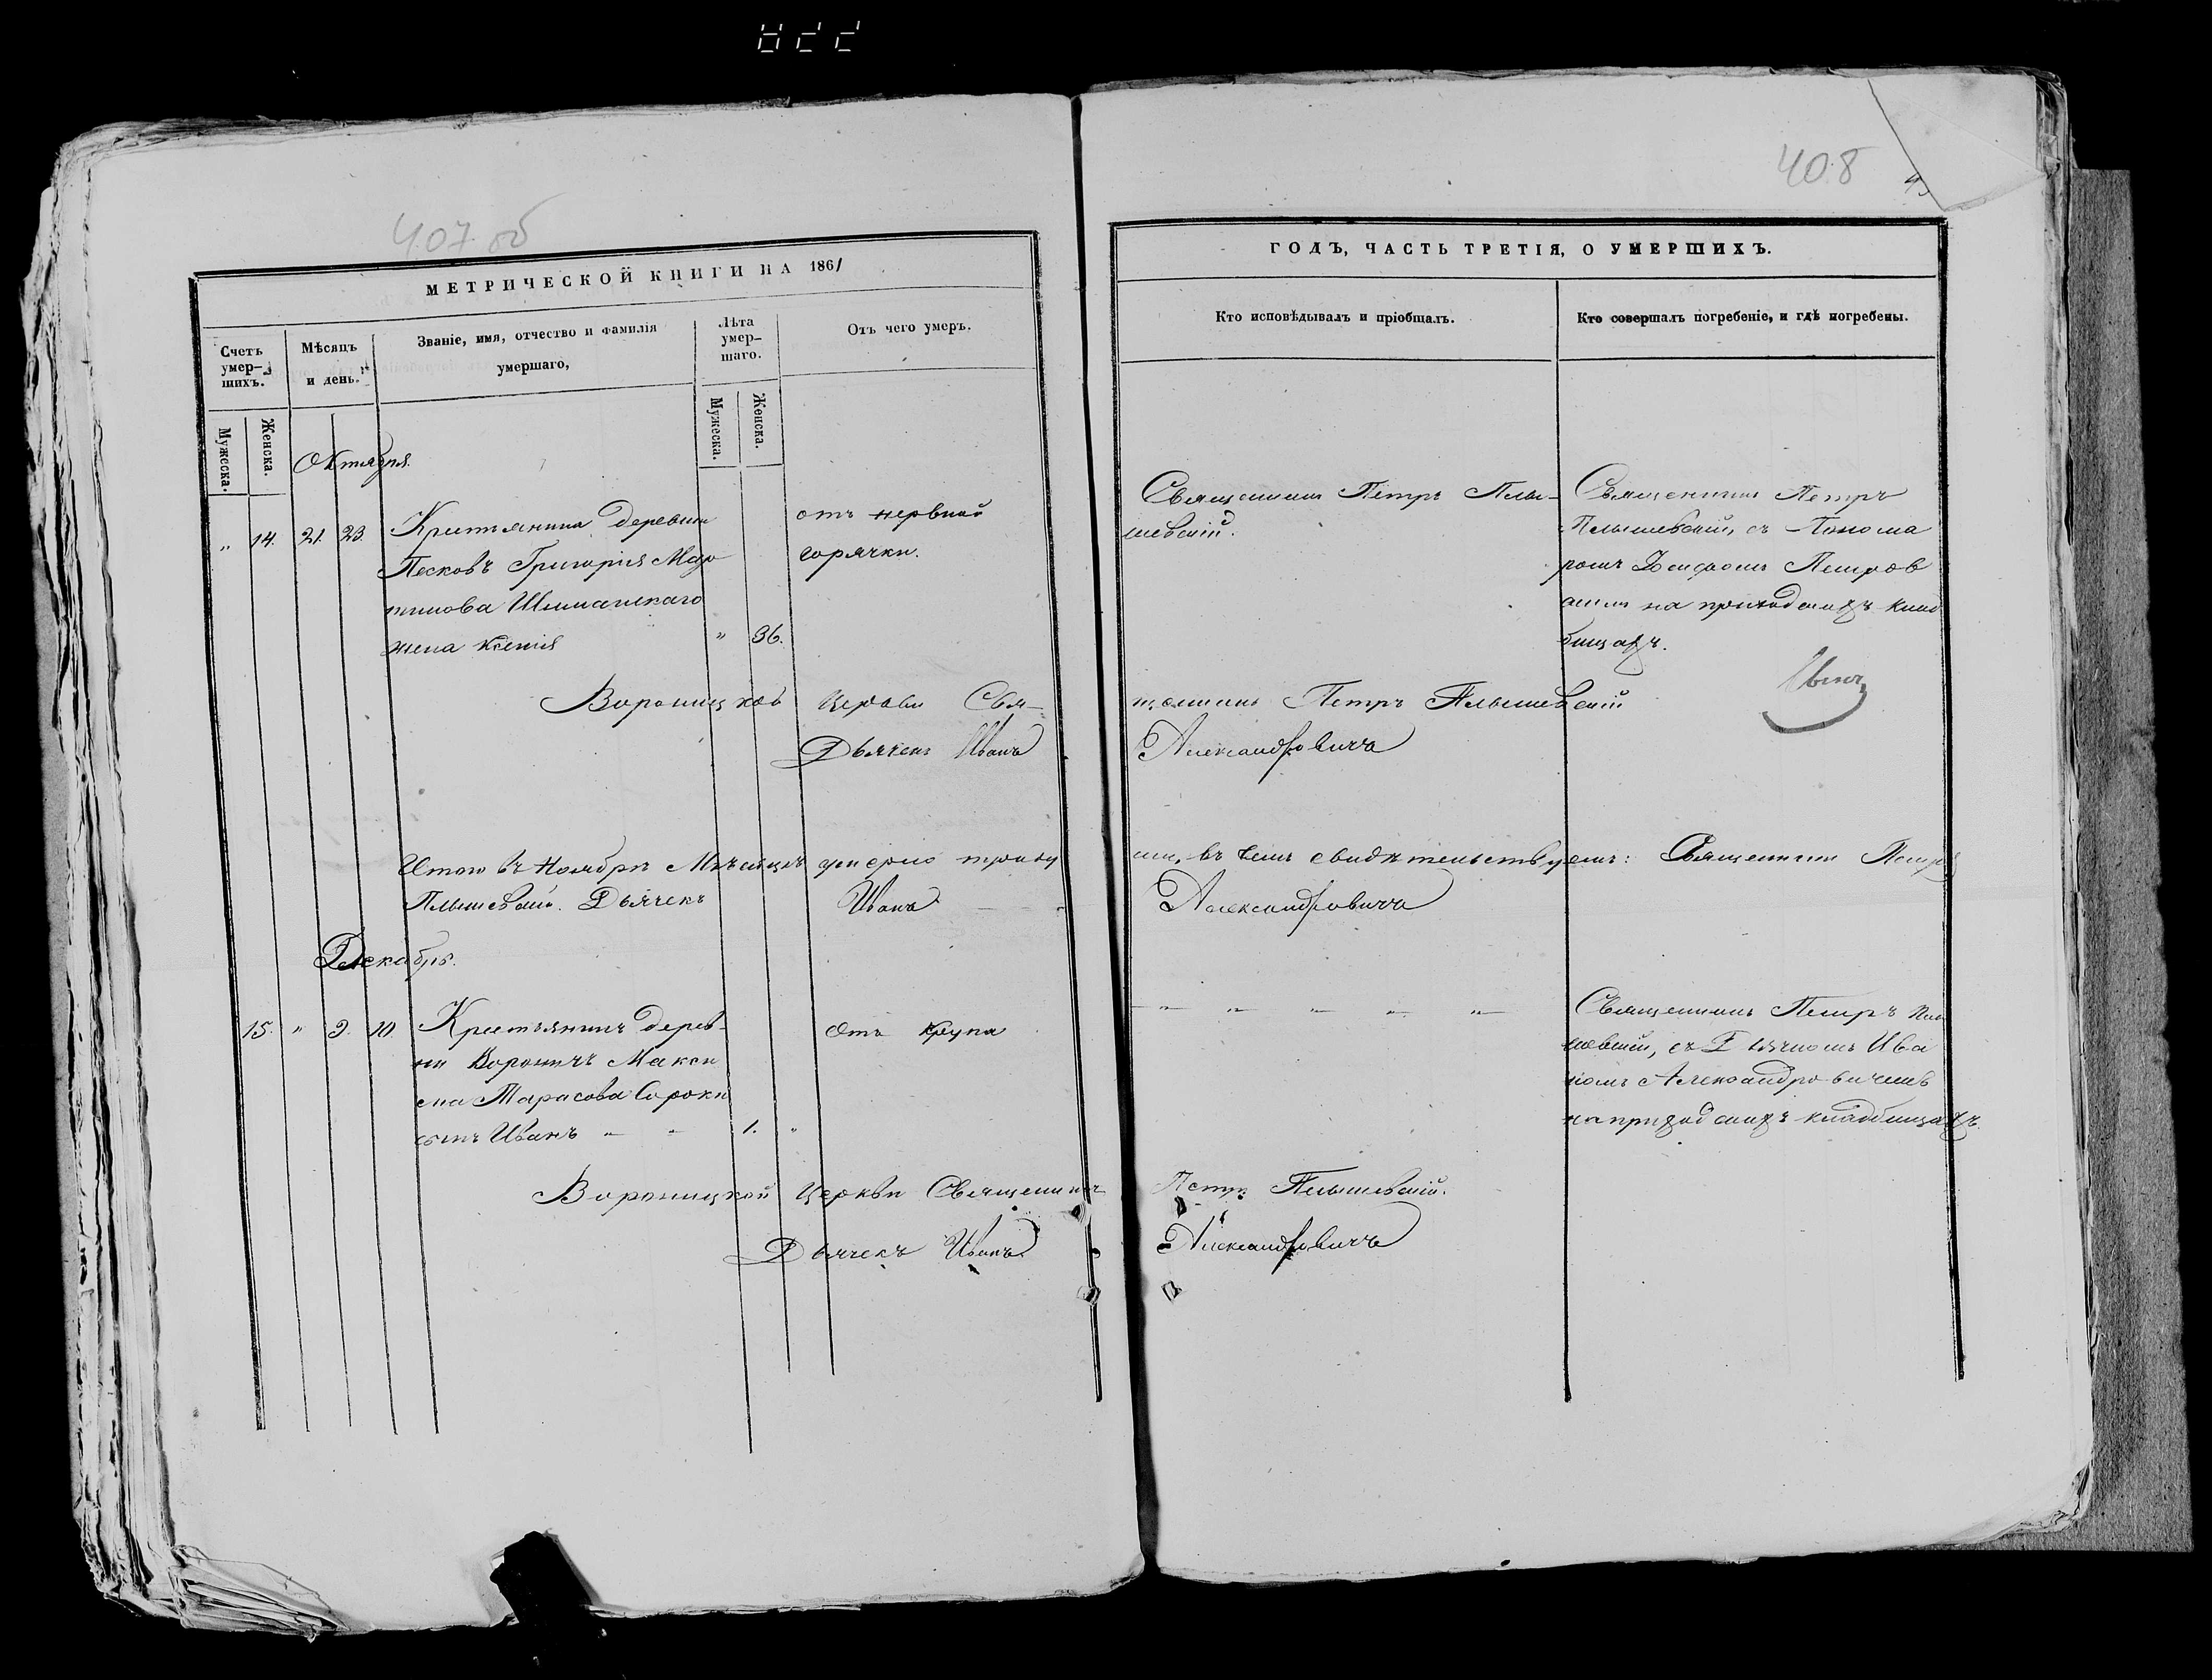 407 об
МЕТРИЧЕСКОЙ КНИГИ НА 1861
Счетъ умер-шихъ.
Мужеска.
Женска.
Мѣсяцъ и день.
Званіе, имя, отчество и фамилія умершаго,
Лѣта умер-шаго.
Мужеска.
Женска.
Отъ чего умеръ.
Октября.
" 14. 21. 23. Крестьянина деревни
Песковъ Григорія Мар
тинова
жена Ксенія " 36.
отъ нервной
горячки.
Вороницкой Церкви Свя-
Дьячекъ Иванъ
Итого въ Ноябрѣ Мѣсяцѣ умерло
Дьячекъ Иванъ
Декабрь.
15. " 9. 10. Крестьянина дерев-
ни Вороничъ Макси
ма Тарасова Сороки
сынъ Иванъ " " 1. "
Отъ крупа
Вороницкой Церкви Священникъ
Дьячекъ Иванъ
408
ГОДЪ, ЧАСТЬ ТРЕТІЯ, О УМЕРШИХЪ.
Кто исповѣдывалъ и пріобщалъ.
Кто совершалъ погребеніе, и гдѣ погребены.
Священникъ Петръ Плы-
шевскій.
Священникъ Петръ
Плышевскій, съ Понома
ремъ Петров
на приходскихъ клад
бищахъ.
щенникъ Петръ Плышевскій
Александровичъ
въ чемъ свидѣтельствуемъ: Священникъ Петръ
Александровичъ
" " " " "
Священникъ Петръ Плы
шевскій, съ Дьячкомъ Ива
номъ Александровичемъ
на приходскихъ кладбищахъ.
Петръ Плышевскій.
Александровичъ